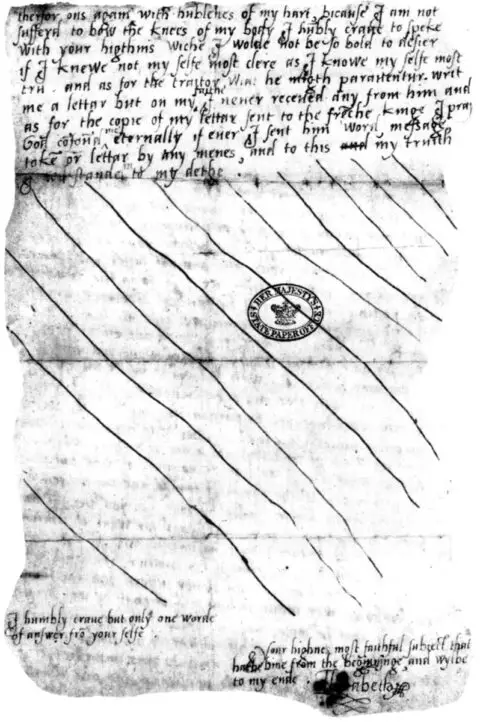 therfor ons again with hublenes of my hart, bicause I am not
sufferd to bow the knees of my body I hubly craue to speke
with your higthnis wiche I wolde not be so bold to desier
if I knewe not my selfe most clere as I knowe my selfe most
tru. and as for the traitor Wiat he migth parauentur writ
me a lettar but on my faithe I neuer receued any from him and
as for the copie of my lettar sent to the freche kinge I pray
God cofound me eternally if euer I sent him word message
toke or lettar by any menes, and to this and my truith
stande in to my dethe.
HER MAJESTY'S
STATE PAPER OFFICE
I humbly craue but only one worde
of answer fro your selfe
Your highnes most faithful subiect that
hathe bine from the beginninge, and wylbe
to my ende
Elizabeth